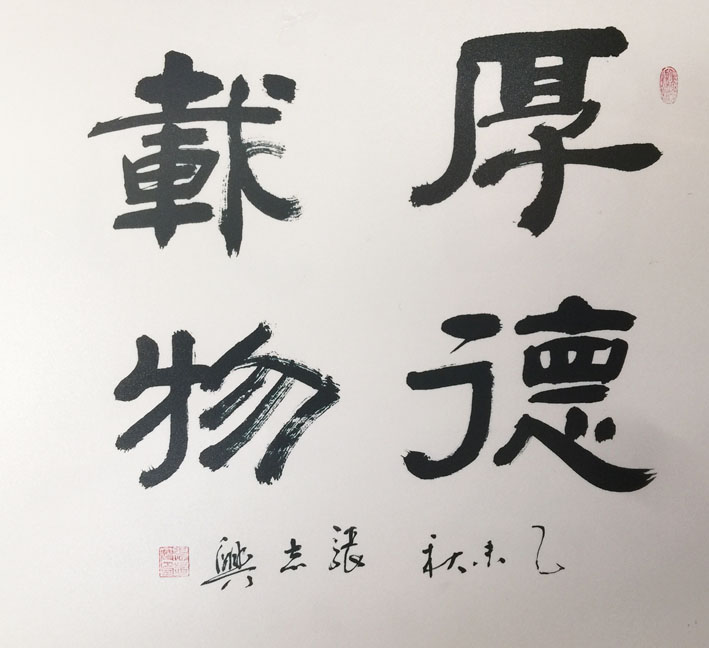 厚德
載物
乙未秋 張志興